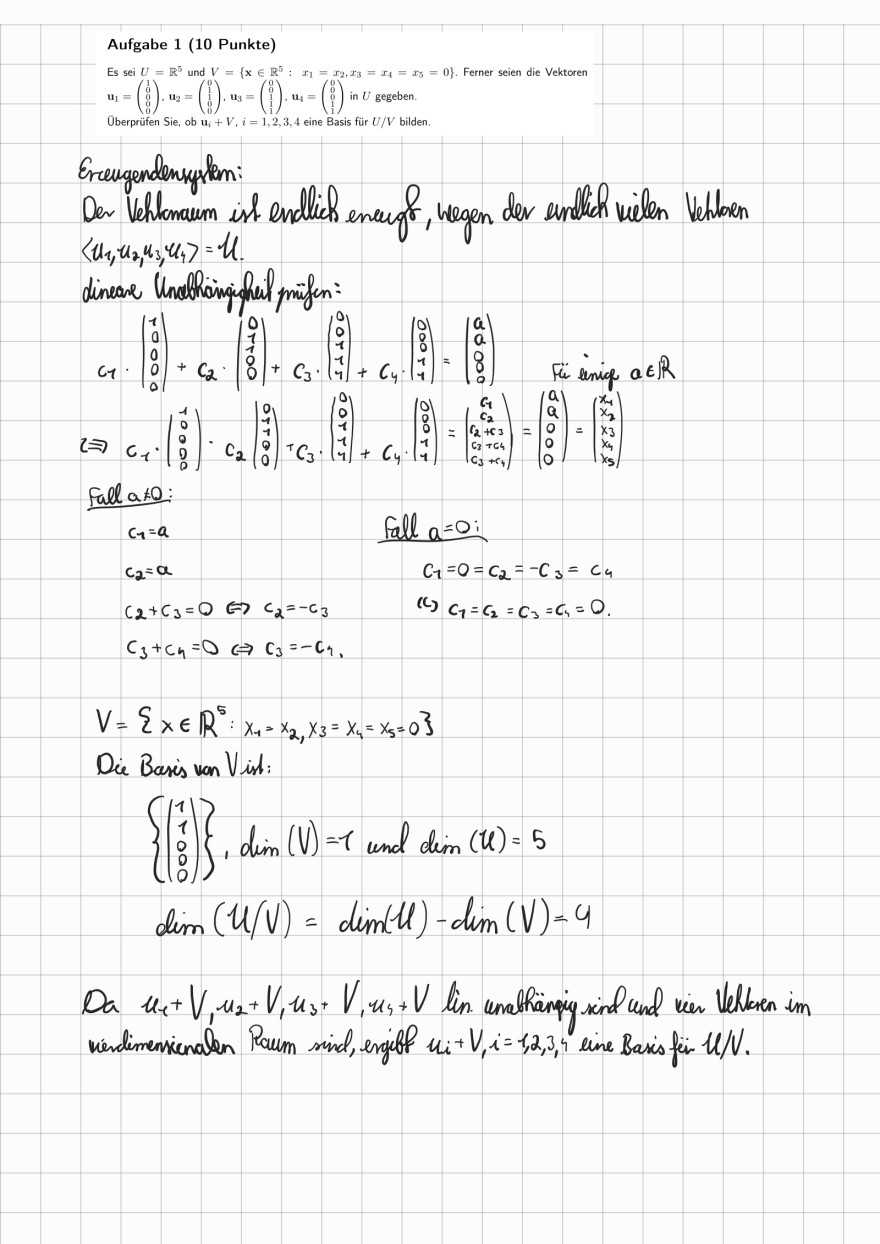 Aufgabe 1 (10 Punkte)
Es sei U = ℝ⁵ und V = {x ∈ ℝ⁵ : x₁ = x₂, x₃ = x₄ = x₅ = 0}. Ferner seien die Vektoren
u₁ = (1 0 0 0 0), u₂ = (0 1 1 0 0), u₃ = (0 0 1 1 1), u₄ = (0 0 0 1 1) in U gegeben.
Überprüfen Sie, ob uᵢ + V, i = 1, 2, 3, 4 eine Basis für U/V bilden.
Erzeugendensystem:
Der Vektorraum ist endlich erzeugt, wegen der endlich vielen Vektoren
⟨u₁, u₂, u₃, u₄⟩ = U.
Lineare Unabhängigkeit prüfen:
c₁ · (1 0 0 0 0) + c₂ · (0 1 1 0 0) + c₃ · (0 0 1 1 1) + c₄ · (0 0 0 1 1) = (a a 0 0 0) Für einige a ∈ ℝ
⇔ c₁ · (1 0 0 0 0) · c₂ (0 1 1 0 0) + c₃ · (0 0 1 1 1) + c₄ · (0 0 0 1 1) = (c₁ c₂ c₂+c₃ c₃+c₄ c₃+c₄) = (a a 0 0 0) = (x₁ x₂ x₃ x₄ x₅)
Fall a≠0:
Fall a=0:
c₁ = a
c₂ = a
c₁ = 0 = c₂ = -c₃ = c₄
c₂ + c₃ = 0 ⇔ c₂ = -c₃
⇔ c₁ = c₂ = c₃ = c₄ = 0.
c₃ + c₄ = 0 ⇔ c₃ = -c₄.
V = {x ∈ ℝ⁵ : x₁ = x₂, x₃ = x₄ = x₅ = 0}
Die Basis von V ist:
{(1 1 0 0 0)}, dim (V) = 1 und dim (U) = 5
dim (U/V) = dim(U) - dim (V) = 4
Da u₁ + V, u₂ + V, u₃ + V, u₄ + V lin. unabhängig sind und vier Vektoren im
vierdimensionalen Raum sind, ergibt uᵢ + V, i = 1,2,3,4 eine Basis für U/V.